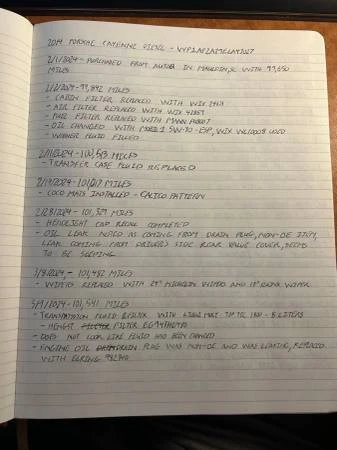 2014 PORSCHE CAYENNE DIESEL -
2/1/2024 - PURCHASED FROM AUTOBI IN MAULDIN, SC WITH 99,650
MILES
2/2/2024 - 99,892 MILES
- CABIN FILTER REPLACED WITH WIX
- AIR FILTER REPLACED WITH WIX
- FUEL FILTER REPLACED WITH MANN
- OIL CHANGED WITH MOBIL 1 5W-30 - ESP, WIX USED
- WASHER FLUID FILLED
2/11/2024 - 100,513 MILES
- TRANSFER CASE FLUID REPLACED
2/19/2024 - 101,017 MILES
- COCO MATS INSTALLED - CALICO PATTERN
2/28/2024 - 101,329 MILES
- HEADLIGHT CAP RECALL COMPLETED
- OIL LEAK NOTED AS COMING FROM DRAIN PLUG, NON-OE
LEAK COMING FROM DRIVERS SIDE REAR VALVE COVER, SEEMS
TO BE SEEPING
3/8/2024 - 101,492 MILES
- WIPERS REPLACED WITH MICHELIN WIPERS AND REAR WIPER
3/9/2024 - 101,541 MILES
- TRANSMISSION FLUID REPLACED WITH - 8 LITERS
- HENGST FILTER
- DOES NOT LOOK LIKE FLUID HAD BEEN CHANGED
- ENGINE OIL DRAIN PLUG WAS NON-OE AND WAS LEAKING, REPLACED
WITH ELRING